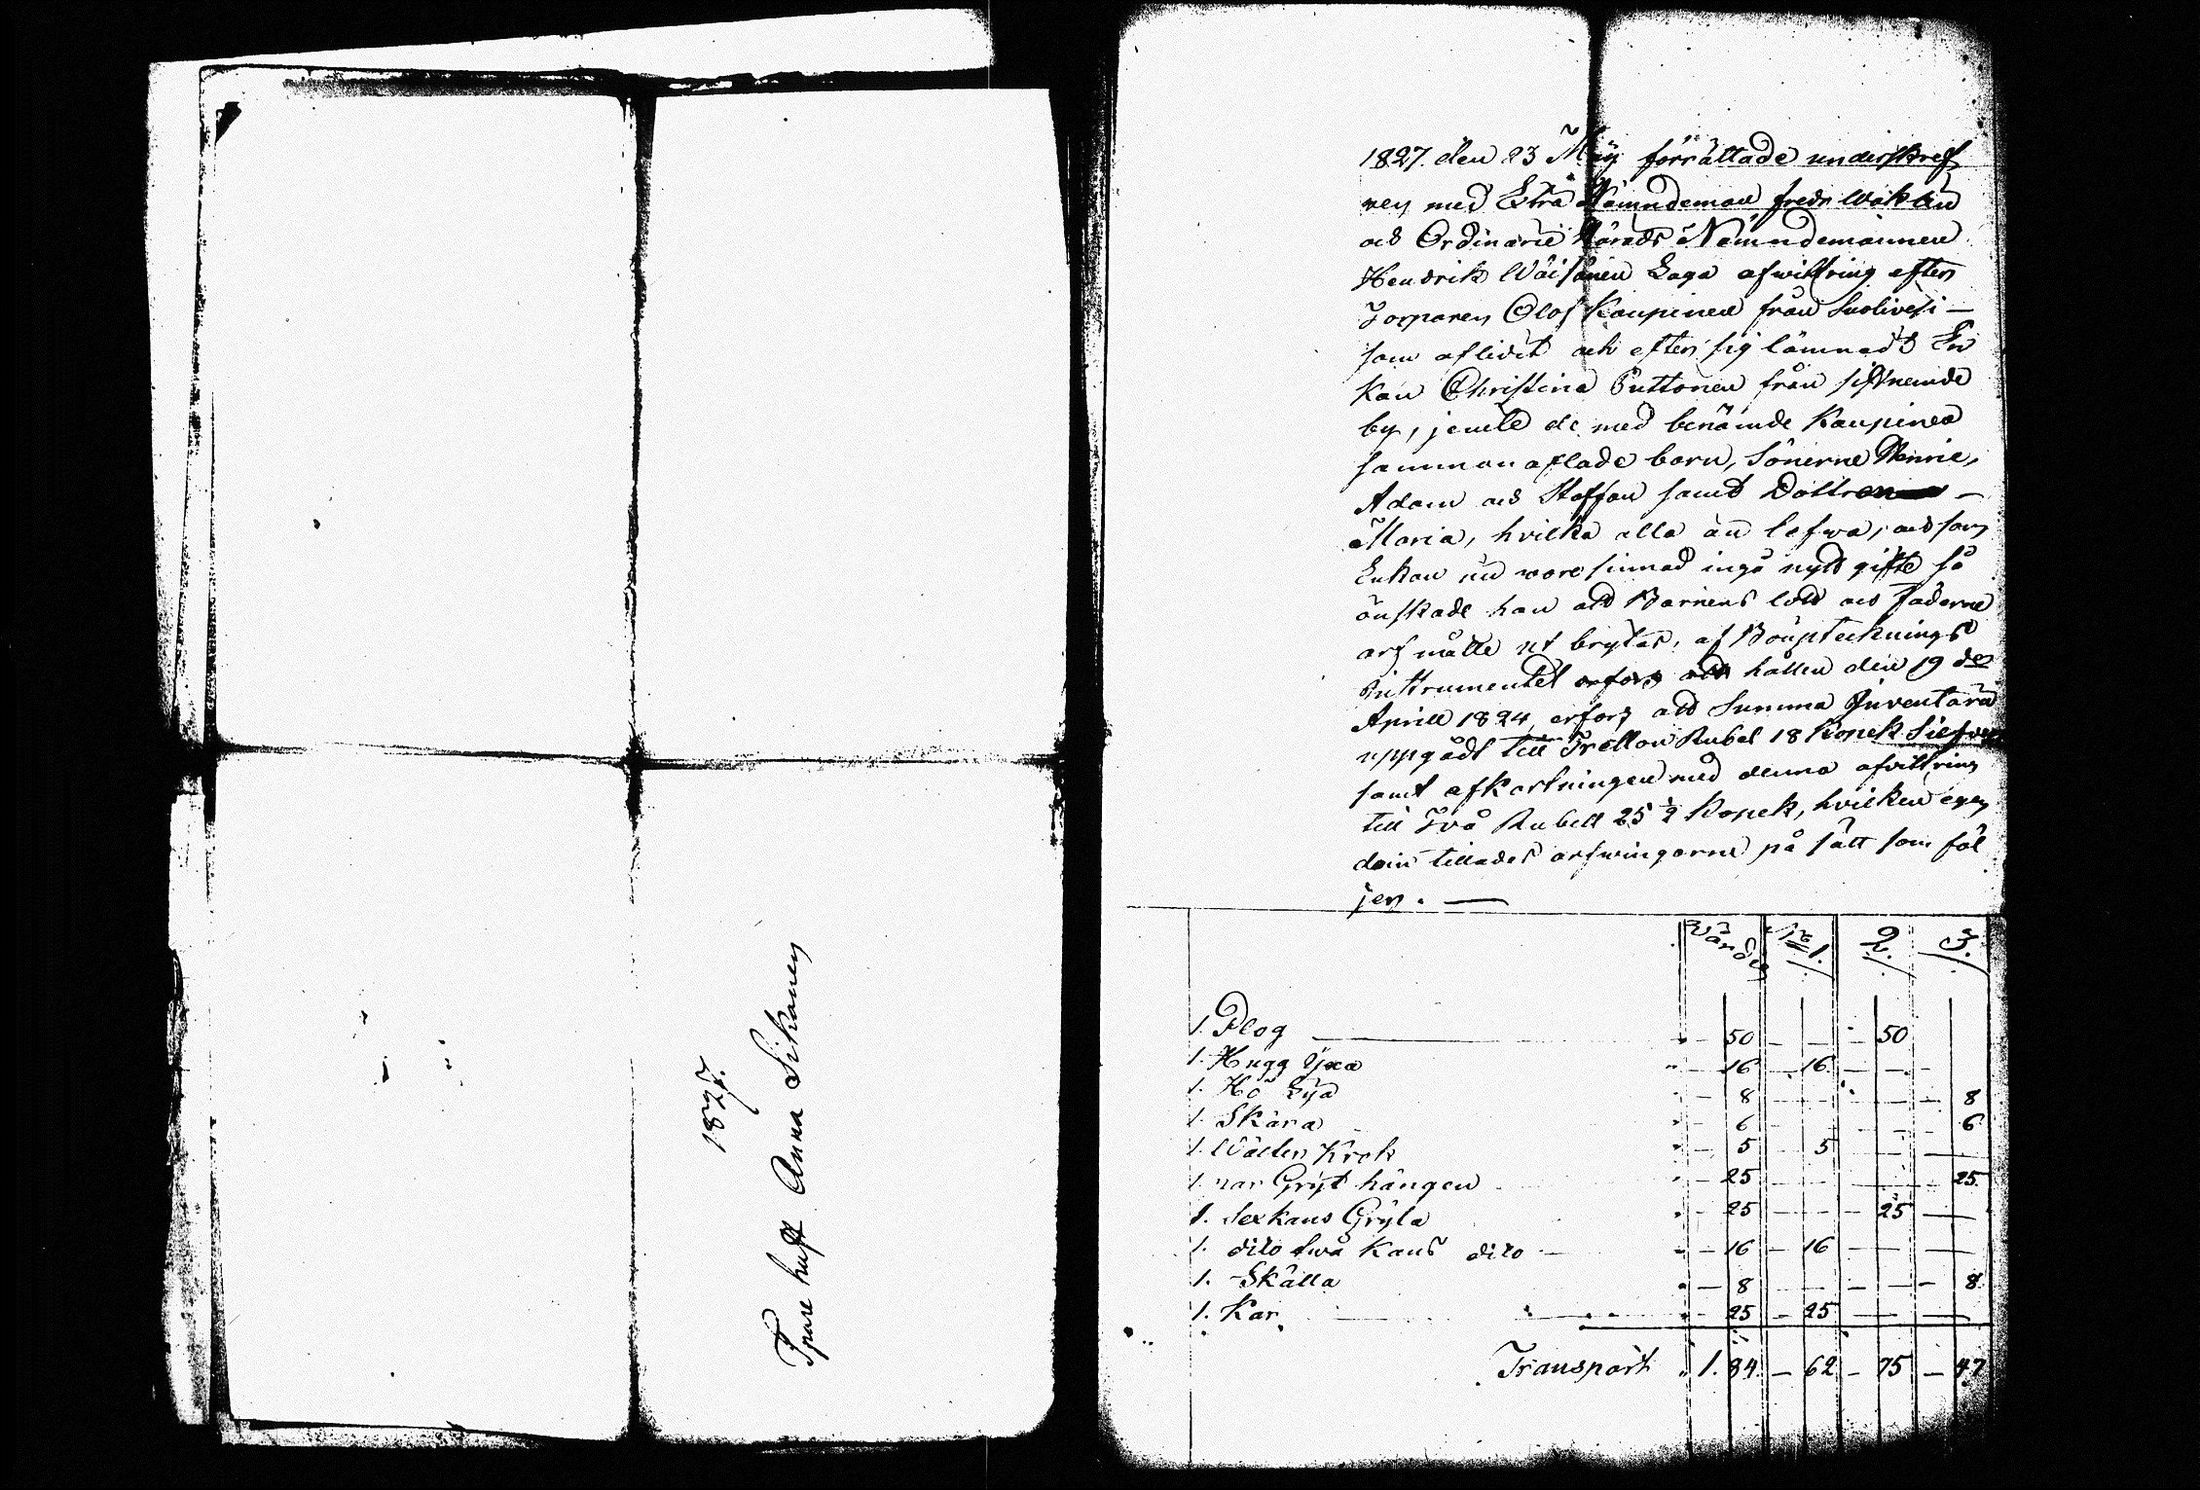 1827.
Anna Sikanen
1827. den 23 Maij förrättade underskref
ven med Extra Nämndeman Fredr Wäklin
och Ordinarie Härads Nämndemannen
Hendrik Wäisänen Laga afwittring efter
Torparen Olof Kaupinen från Suolivesi —
som aflidit och efter sig lämnadt En
kan Christina Puttonen från sistnemde
by, jemte de med benämde Kaupinen
samman aflade barn, Sönerne Henric,
Adam och Staffan samt Dottren —
Maria, hvilka alla än lefwa, och som
Enkan nu vore sinnad ingå nytt gifte så
önskade hon att Barnens lott och Fäderne
arf måtte ut brytas, af Bouptecknings
Instrumentet hållen den 19 de
Aprill 1824, erfors att Summa Inventarii
uppgådt till Tretton Rubel 18 Kopek Silfver
samt afkortningen med denna afvittring
till Två Rubell 25 ½ Kopek, hvilken egen
dom tillades arfwingarne på sätt som föl
jer. —
Värde N:o 1. 2. 3.
1. Plog — 50 — — 50
1. Hugg Yxa — 16 — 16 — —
1. Hö Lya — 8 — — — 8
1. Skära — 6 — — 6
1. Wälten Krok — 5 5 — —
1. par Gryt hängen — 25 — — 25
1. Sexkans Gryta — 25 — — 25 —
1. dito twå Kans dito — 16 — 16 — —
1. Skälla — 8 — — — 8
1. Kar — 25 — 25 — —
Transport 1. 84 — 62 — 75 — 47